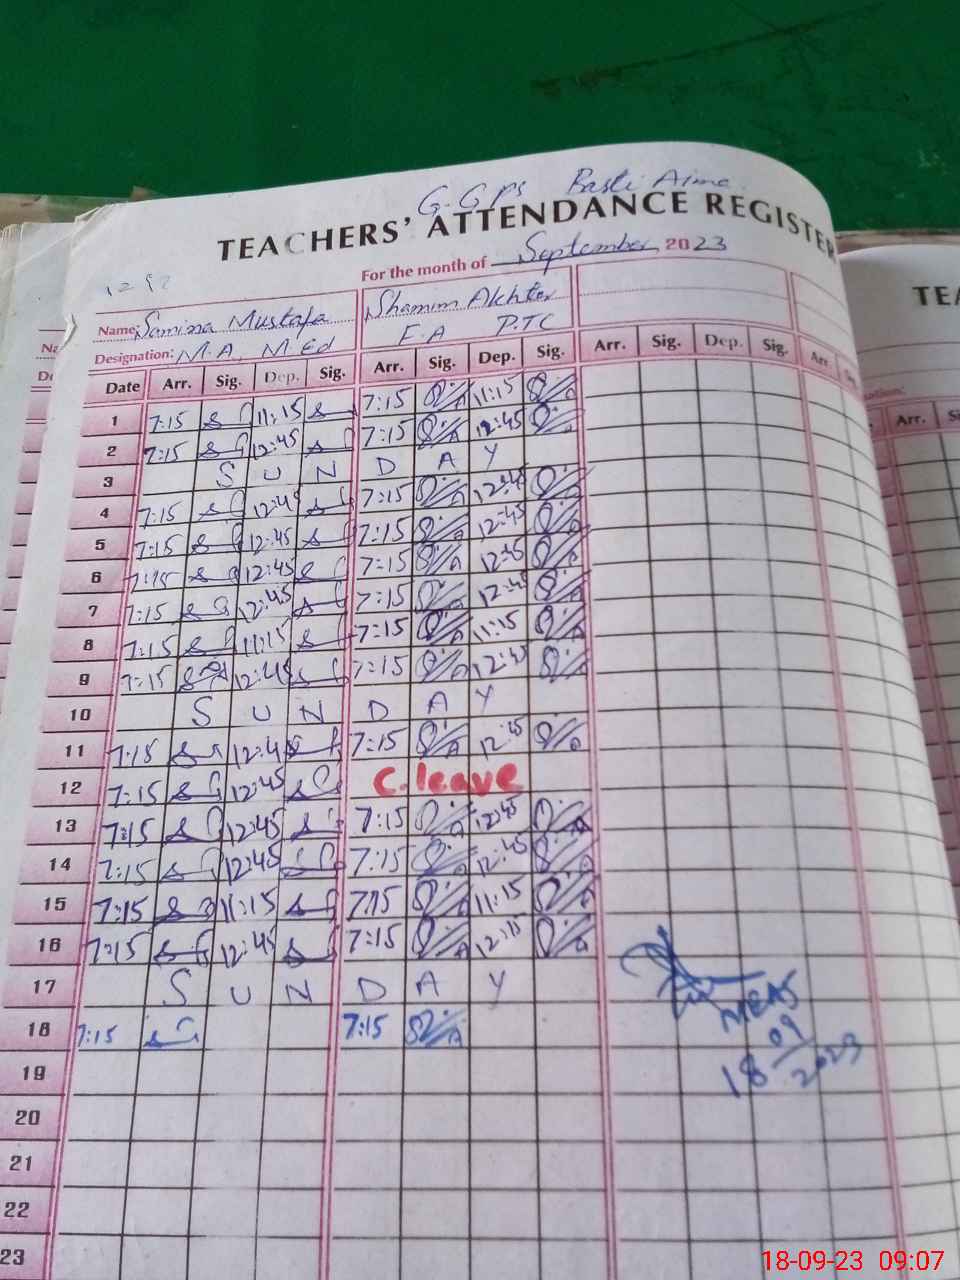 G.G.P.S Basti Aima
TEACHERS' ATTENDANCE REGISTER
For the month of September 2023
Name: Samina Mustafa Shamim Akhter
Designation: M.A, M.Ed F.A P.T.C
Date Arr. Sig. Dep. Sig. Arr. Sig. Dep. Sig. Arr. Sig. Dep. Sig. Arr
1 7:15 11:15 7:15 11:15
2 7:15 12:45 7:15 12:45
3 S U N D A Y
4 7:15 12:45 7:15 12:45
5 7:15 12:45 7:15 12:45
6 7:15 12:45 7:15 12:45
7 7:15 12:45 7:15 12:45
8 7:15 11:15 7:15 11:15
9 7:15 12:45 7:15 12:45
10 S U N D A Y
11 7:15 12:45 7:15 12:45
12 7:15 12:45 C.leave
13 7:15 12:45 7:15 12:45
14 7:15 12:45 7:15 12:45
15 7:15 11:15 7:15 11:15
16 7:15 12:45 7:15
17 S U N D A Y
18 7:15 7:15
19
20
21
22
23
18 09 2023
TEA
Arr.
18-09-23 09:07